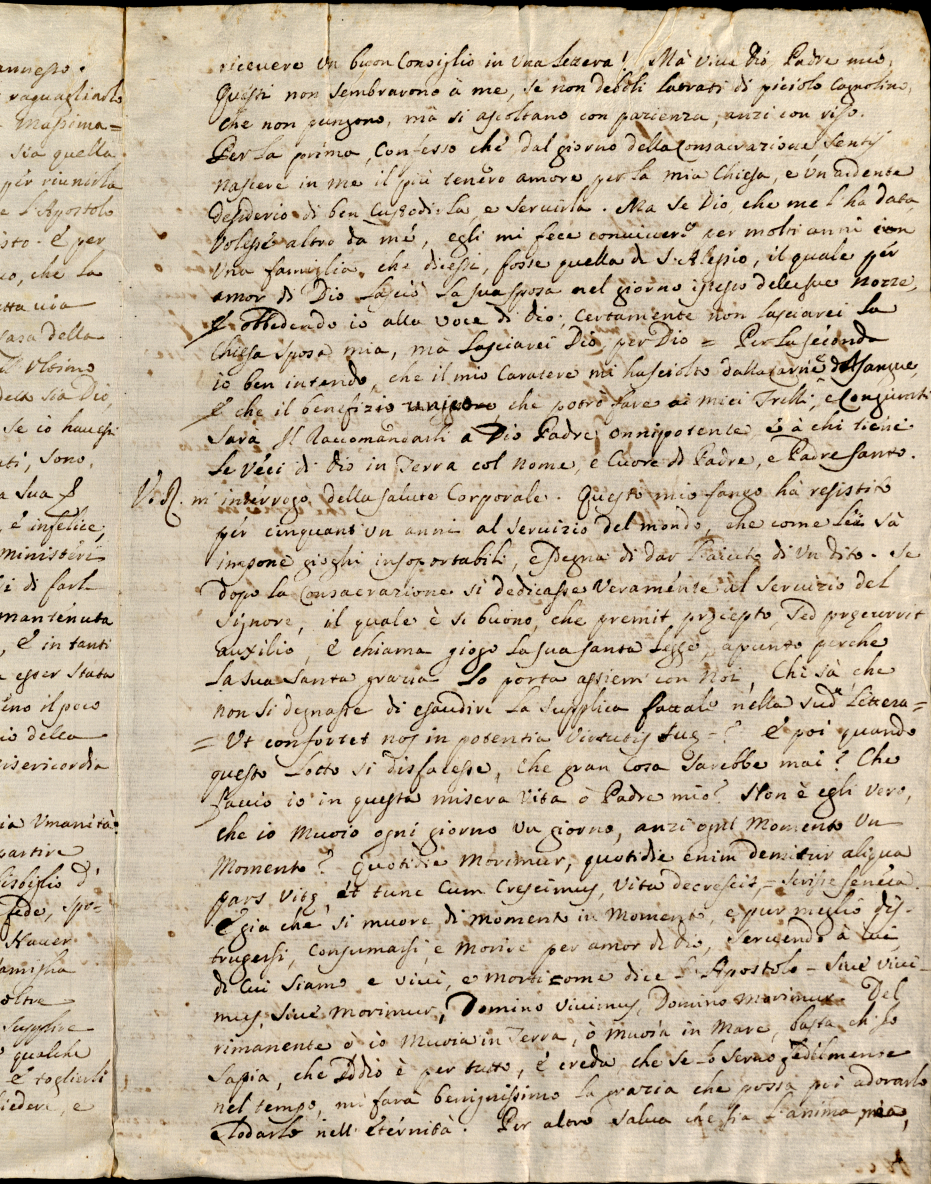 annesso.
raguagliarlo
Massima=
sia quella
per riunirla
e l'Apostolo
sto. È per
so, che la
tta via
Casa della
l'Ultimo
della sia Dio,
Se io havessi
ati, sono,
a sua S
, è infelice;
ministeri
si di farl
mantenuta
, È in tanti
esser stata
eno il poco
io della
isericordia
ia Umanità:
partire
isbiglio d'
fede, spo=
Haver
famiglia
oltre
supplire
qualche
È toglierli
iedere, e
ricevere un buon Consiglio in una Lettera! Mà vive Dio, Padre mio,
Questi non sembrarono à me, se non deboli latrati di piciolo Cagnolino,
che non pungono, mà si ascoltano con pazienza, anzi con riso.
Per la prima, Confesso che dal giorno della Consacrazione, sentij
nascere in me il più tenero amore per la mia Chiesa, e un ardente
desiderio di ben Custodirla, e servirla. Ma se Dio, che me l'ha data
volesse altro da mé, egli mi fece convivere per molti anni con
una famiglia, che dicesi, fosse quella di S. Alessio, il quale per
amor di Dio Lasciò La sua sposa nel giorno istesso delle sue nozze,
E obbedendo io alla voce di Dio, Certamente non lasciarei La
Chiesa sposa mia, mà lasciarei Dio per Dio = Per la seconda
io ben intendo, che il mio Caratere mi hà sciolto dalla carne, e dal sangue,
E che il benefizio unico che potrò fare ai miei Frelli, e Congiunti
sarà Il Raccomandarli a Dio Padre onnipotente È à chi tiene
Le Veci di Dio in Terra col nome, e Cuore di Padre, e Padre Santo.
V. R. m'interroga della salute Corporale. Questo mio fango hà resistito
per cinquant'un anni al servizio del mondo, che come Lei sà
impone gioghi insoportabili, e sdegna di dar l'aiuto di un dito. Se
dopo la Consacrazione si dedicasse veramente al servizio del
Signore, il quale è si buono, che premit precepto, sed precurrit
auxilio, E chiama giogo la sua santa Legge, apunto perche
La sua Santa grazia Lo porta assiem con Noi, Chi sà, che
non si degnasse di esaudire La supplica fattale nella sud.ª Lettera =
= Ut confortet nos in potentia Virtutis suę -? È poi quando
questo Lotto si disfacesse, che gran cosa sarebbe mai? Che
faccio io in questa misera vita ò Padre mio? Non è egli vero,
che io Muoio ogni giorno un giorno, anzi ogni Momento un
Momento? Quotidie morimur, quotidie enim demitur aliqua
pars vitę, et tunc cum crescimus, vita decrescit = scrisse Seneca.
E già che si muore di momento in momento, e pur meglio dis-
trugersi, consumarsi, e Morire per amor di Dio, servendo à Lui,
di cui siamo e vivi, e morti come dice L'Apostolo - sive vivi-
mus, sive morimur, Domino vivimus, Domino morimur. Del
rimanente ò io Muoia in Terra, ò Muoia in Mare, basta ch'io
sapia, che Iddio è per tutto, È creda, che se Lo servo fedelmente
nel tempo, mi farà benignissimo la grazia che possa poi adorarlo
e Lodarlo nell'eternità. Per altro salva che sia l'anima mia,